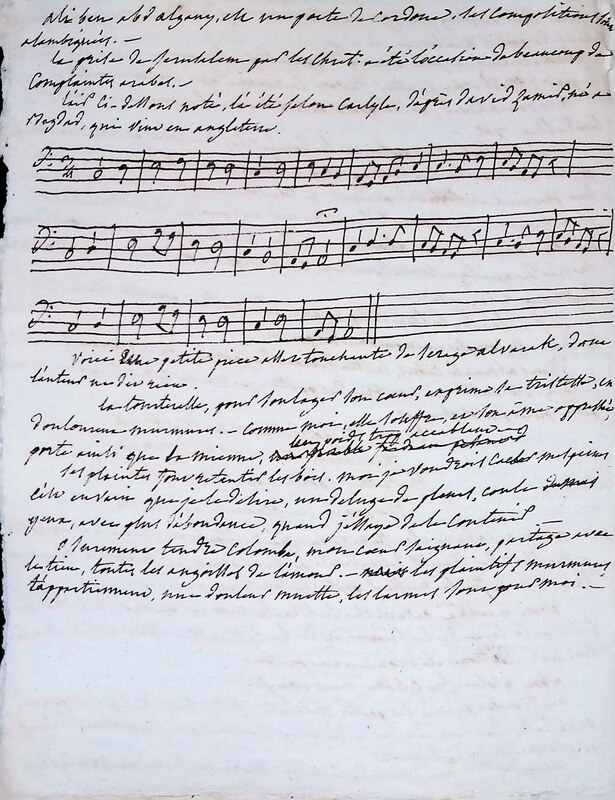 ali ben abd algany, est un poete de cordoue, ses compositions sont
alambiquées. —
la prise de Jerusalem par les Chret. a été l'occasion de beaucoup de
Complaintes arabes. —
l'air ci-dessous noté, l'a été selon Carlyle, d'après david Zamir, né a
Bagdad, qui vint en angleterre.
Voici une petite piece assez touchante de serage alvarak, dont
l'auteur ne dit rien.
la tourterelle, pour soulager son cœur, exprime sa tristesse, en
douloureux murmures. — Comme moi, elle souffre, et son ame oppressée,
porte ainsi que la mienne, un poids trop accablant
ses plaintes font retentir les bois. moi je voudrois cacher mes peines
C'est en vain que je le desire, un deluge de pleurs, coule de mes
yeux, avec plus d'abondance, quand j'essaye de le contenir
O surement tendre Colombe, mon cœur saignant, partage avec
le tien, toutes les angoisses de l'amour. — les plaintifs murmures
t'appartiennent, une douleur muette, les larmes sont pour moi. —